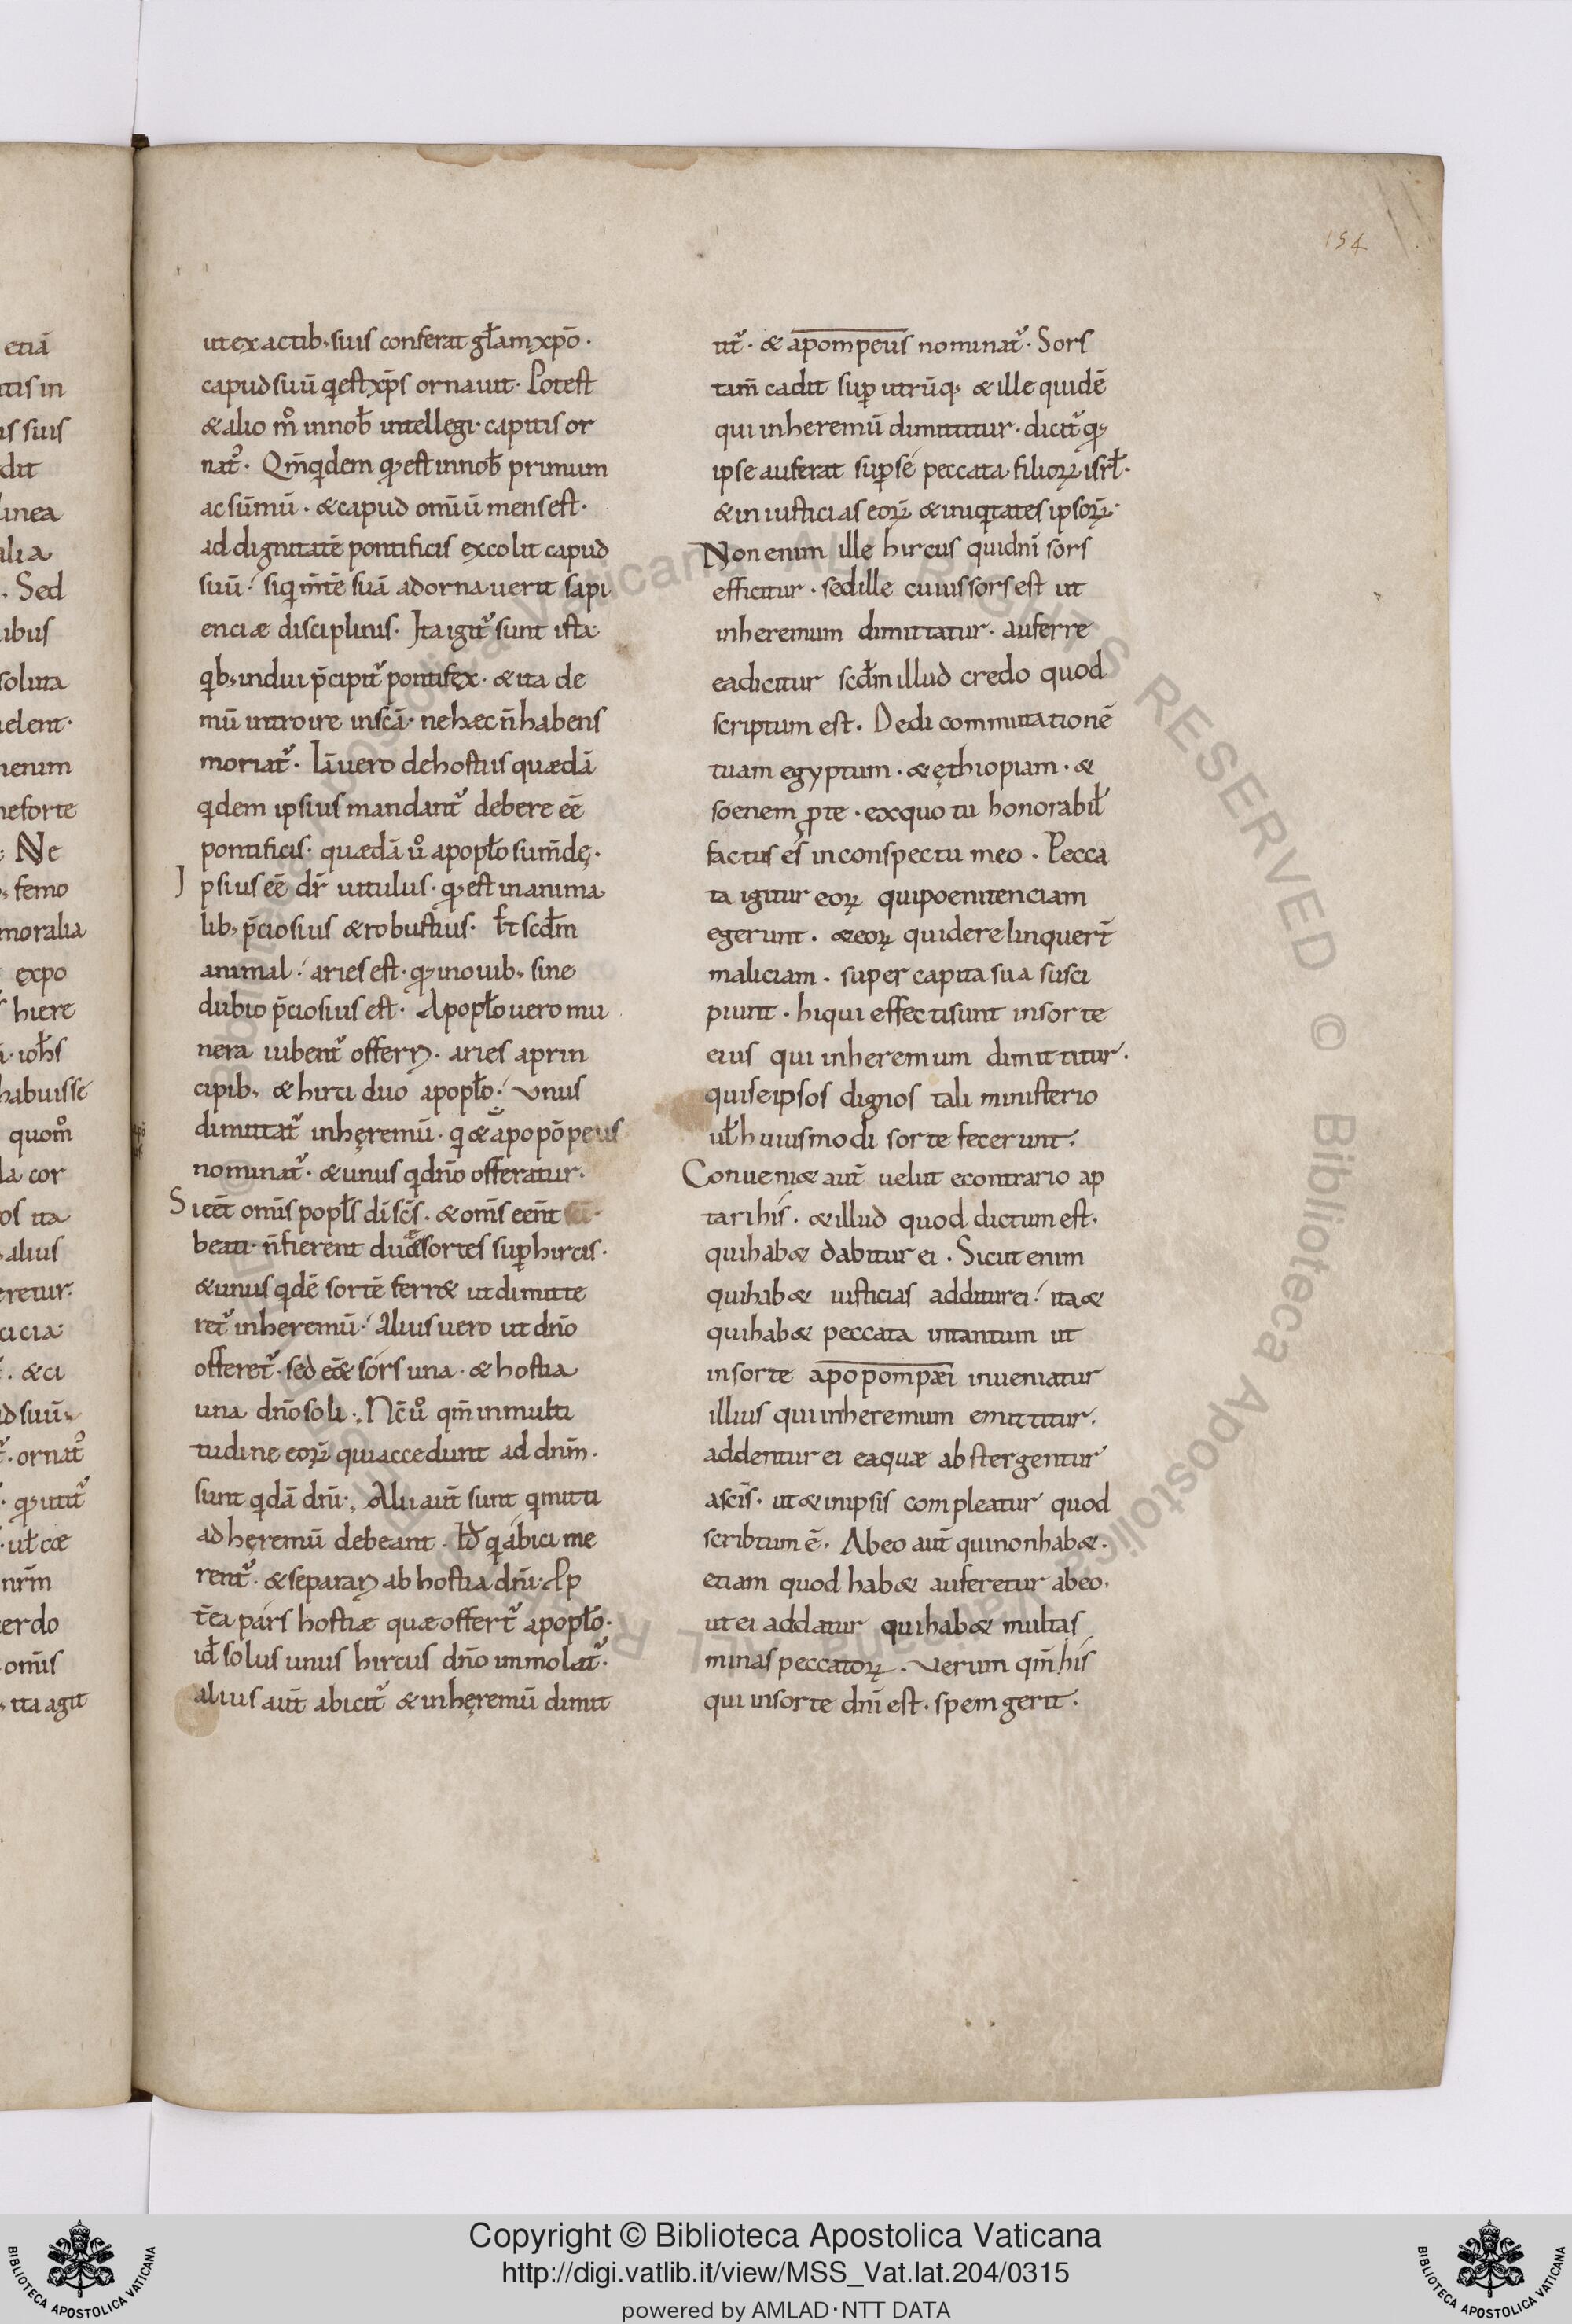 154
etiā
tis in
is suis
dit
linea
alia
. Sed
ibus
soluta
uelent·
enim
neforte
: Ne
, femo
moralia
expo
hiere
ioħs
habuisse
quom̊
la cor
os ita
alius
retur·
cicia
. &ci
d suū
. ornat᷒
· qđ utit᷒
· uł cæ
nr̄m
cerdo
om̄s
, ita agit
utex actib; suis conferat gł̄am xp̄o ·
capud suū q̇ est xp̄s ornauit · Potest
& alio m̊ innob̄ intellegi · capitis or
nat᷒ · Qm̄ q̇dem qđ est innob̄ primum
ac sūmū · & capud omīū mens est ·
ad dignitatē pontificis excolit capud
suū · siq̇ m̄tē suā adornauerit sapi
enciæ disciplinis · Ita igit᷒ sunt ista
q̇b; indui p̄cipit᷒ pontifex · & ita de
mū introire in sc̄a · ne hæc n̄ habens
moriat᷒ · Iā uero de hostiis quædā
q̇dem ipsius mandant᷒ debere eē
pontificis · quædā ů apopło sum̄dę ·
Ipsius eē dr̄ uitulus · qđ est in anima
lib; p̄ciosius & robustius · ł̄t scd̄m
animal · aries est · qđ in ouib; sine
dubio p̄ciosius est · Apopło uero mu
nera iubent᷒ offerri · aries aprin
cipib; & hirci duo apopło · Vnus
dimittat᷒ inhęremū · q̇ & apopōpeus
nominat᷒ · & unus q̇ dn̄o offeratur ·
Si eēt omīs popłs dī sc̄s · & om̄s eēnt
beati · n̄ fierent duæ sortes sup̱ hircis ·
& unus q̇dē sortē ferr& ut dimitte
ret᷒ inheremū · Alius uero ut dn̄o
offeret᷒ · sed eē& sors una · & hostia
una dn̄o soli · Nc̄ ů qm̄ in multi
tudine eoꝝ qui accedunt ad dn̄m ·
sunt q̇dā dn̄i · Alii aūt sunt q̇ mitti
ad hęremū debeant · Id̄ q̇ abici me
rent᷒ · & separari ab hostia dn̄i · Pp
t̄ea pars hostiæ quæ offert᷒ apopło ·
id̄ solus unus hircus dn̄o immolat᷒ ·
alius aūt abicit᷒ & inhęremū dimit
tit᷒ · & apompeus nominat᷒ · Sors
tam̄ cadit sup̱ utrūq; & ille quidē
qui inheremū dimittitur · dicit᷒ qđ
ipse auferat sup̱ se peccata filioꝝ isrł ·
& iniusticias eoꝝ & iniq̇tates ipsoꝝ ·
Non enim ille hircus qui dn̄i sors
efficitur · sed ille cuius sors est ut
inheremum dimittatur · auferre
ea dicitur scd̄m illud credo quod
scriptum est · Dedi commutationē
tuam egyptum · & ęthiopiam · &
soenem ꝓ te · ex quo tu honorabił
factus es in conspectu meo · Pecca
ta igitur eoꝝ qui poenitenciam
egerunt · & eoꝝ qui derelinquert̄
maliciam · super capita sua susci
piunt · hi qui effecti sunt in sorte
eius qui inheremum dimittitur ·
qui seipsos dignos tali ministerio
uł huiusmodi sorte fecerunt ·
Conueni& aūt uelut econtrario ap
tari his · & illud quod dictum est ·
qui hab& dabitur ei · Sicut enim
qui hab& iusticias additur ei · ita &
qui hab& peccata intantum ut
in sorte apopompæi inueniatur
illius qui inheremum emittitur ·
addentur ei ea quæ abstergentur
a sc̄is · ut & in ipsis compleatur quod
scribtum ē · Ab eo aūt qui non hab& ·
etiam quod hab& auferetur ab eo ·
ut ei addatur qui hab& multas
minas peccatoꝝ · Verum qm̄ his
qui in sorte dn̄i est · spem gerit ·
Copyright © Biblioteca Apostolica Vaticana
http://digi.vatlib.it/view/MSS_Vat.lat.204/0315
powered by AMLAD·NTT DATA
BIBLIOTECA APOSTOLICA VATICANA
BIBLIOTECA APOSTOLICA VATICANA